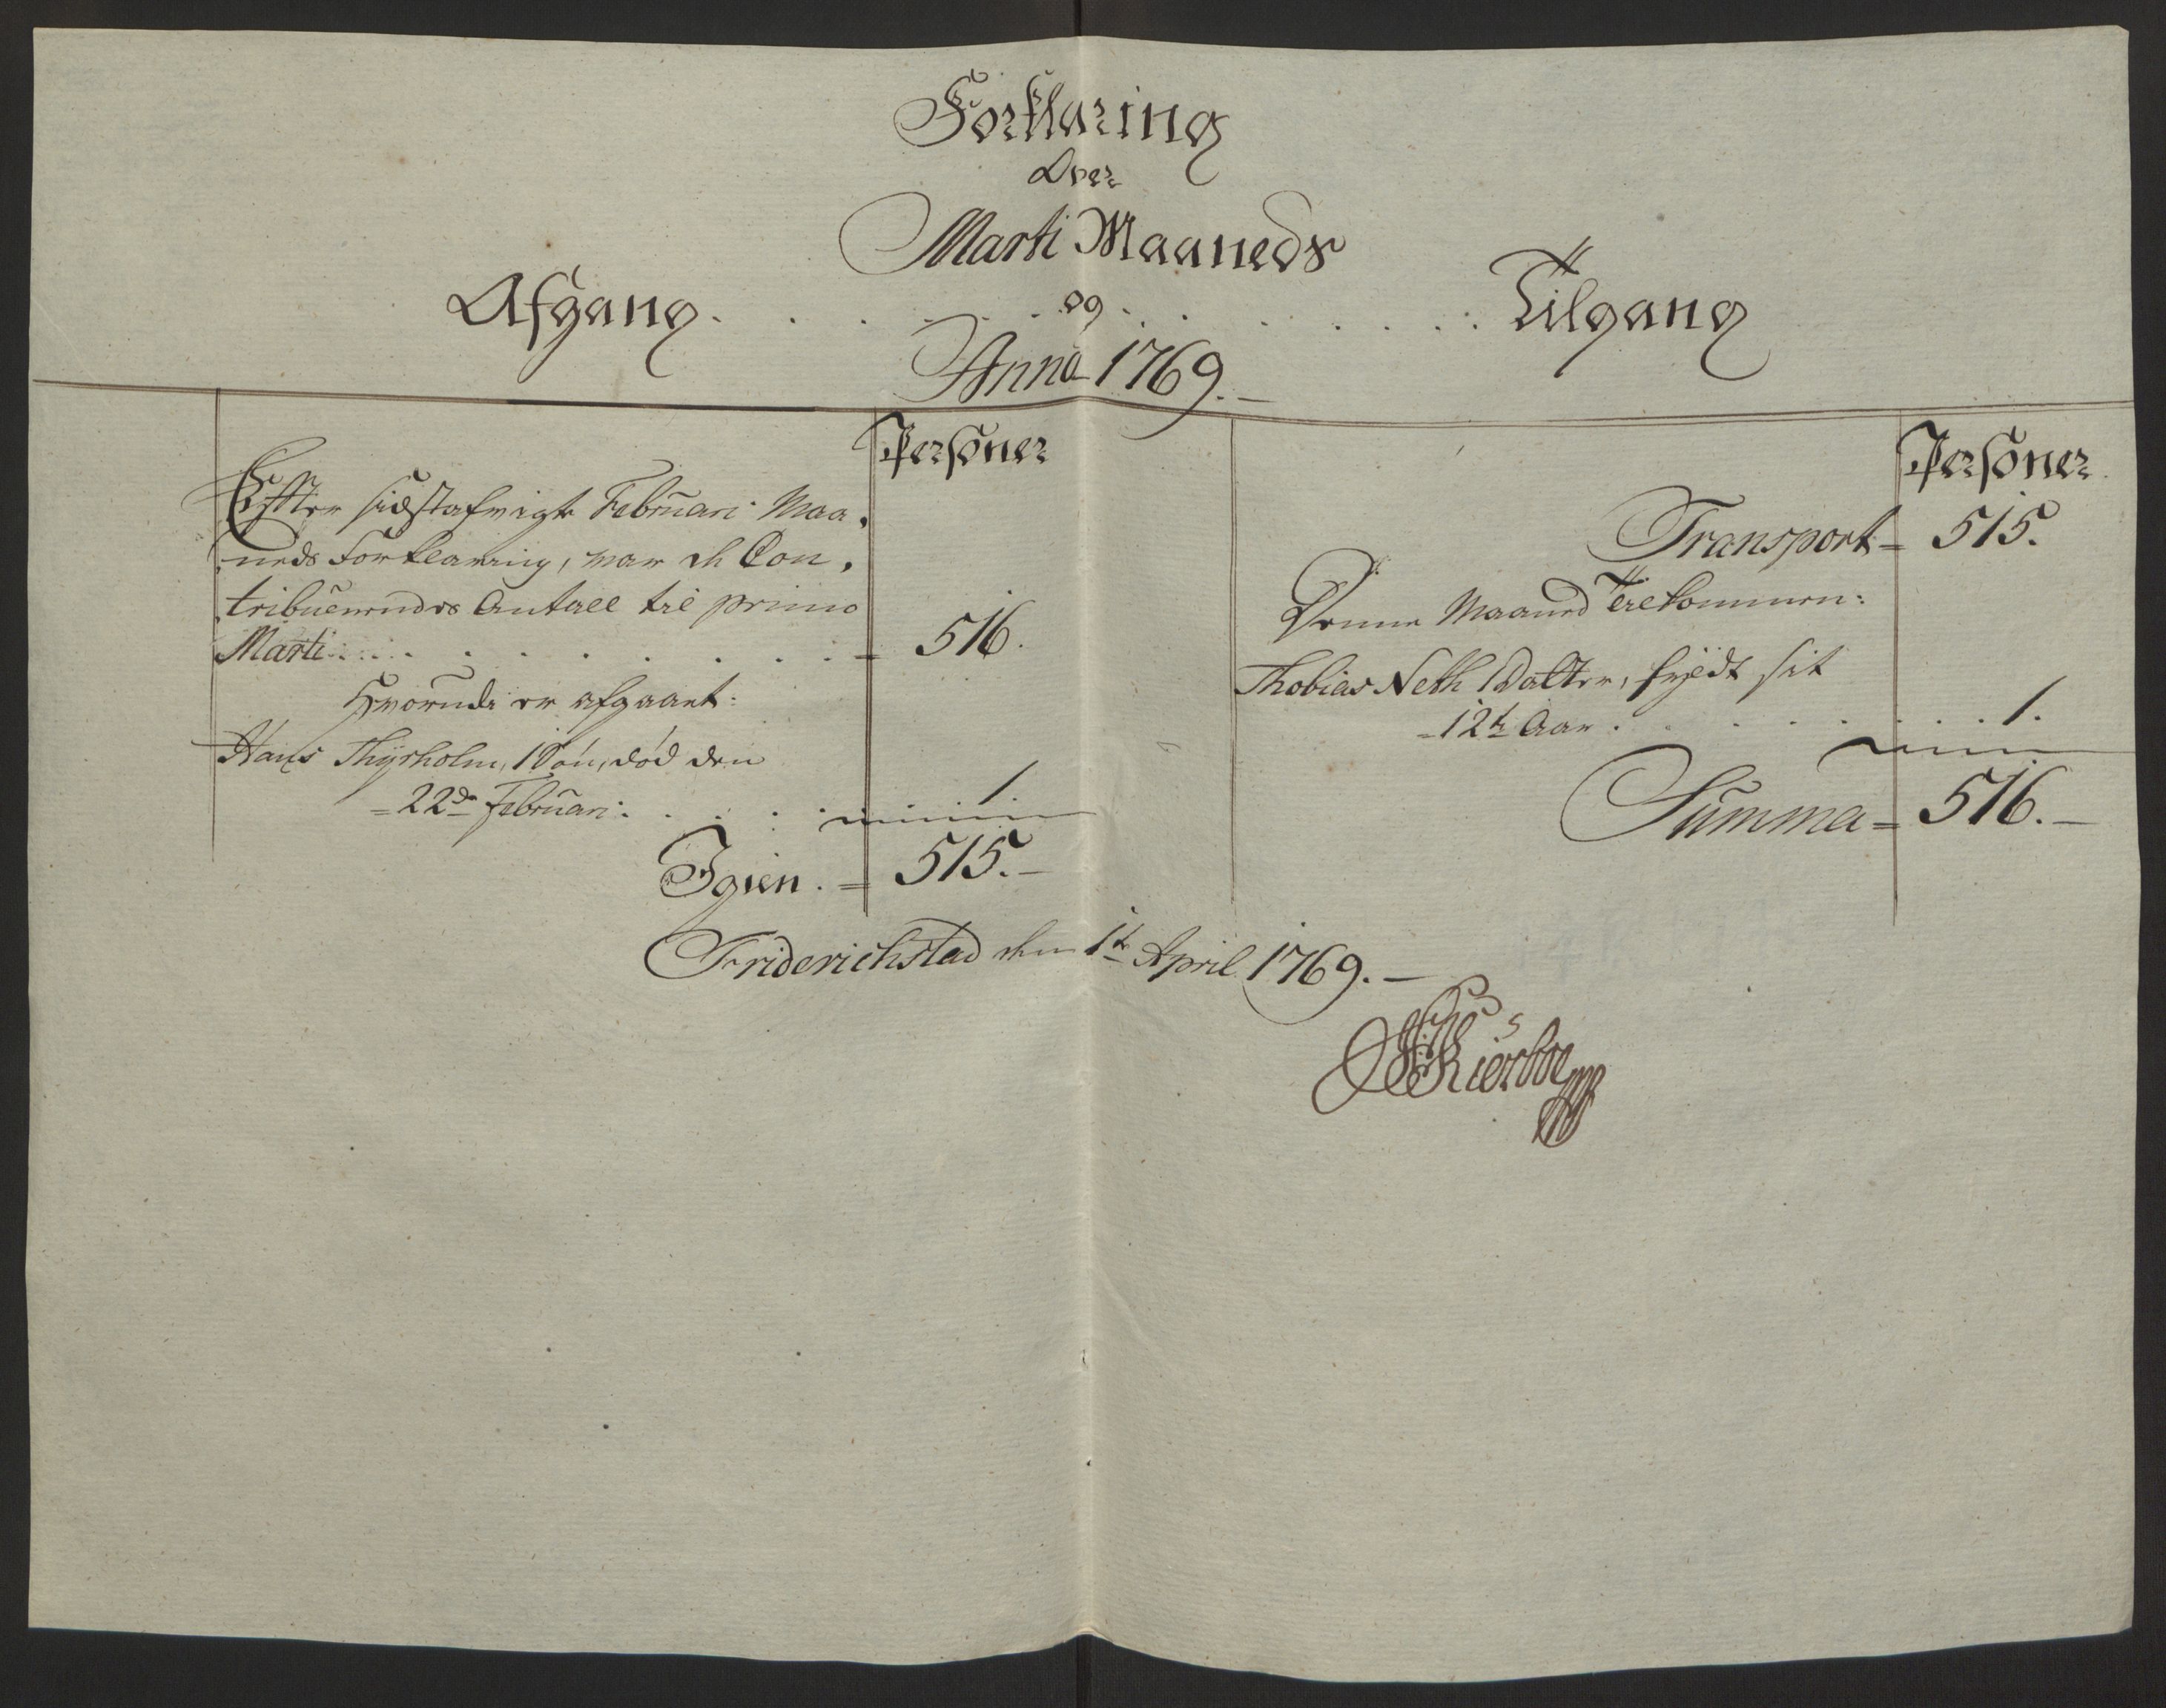 Forklaring
Over
Marti Maaneds
Afgang . . . . . og . . . . . Tilgang
Anno 1769.
Personer
Effter sidstafvigte Februari Maa,
neds Forklaring, var de Con,
tribuerendes Antall til primo
Marti . . . . . 516.
Hvorunder er afgaaet:
Hans Thyrholm, 1 Søn, død den
22de Februari . . . . 1.
Igien . 515.
Personer
Transport 515.
Denne Maaned tilkommen:
Thobias Neth 1 Datter, fyldt sit
12te Aar . . . . . 1.
Summa 516.
Friderichstad den 1te April 1769.
Kierboe